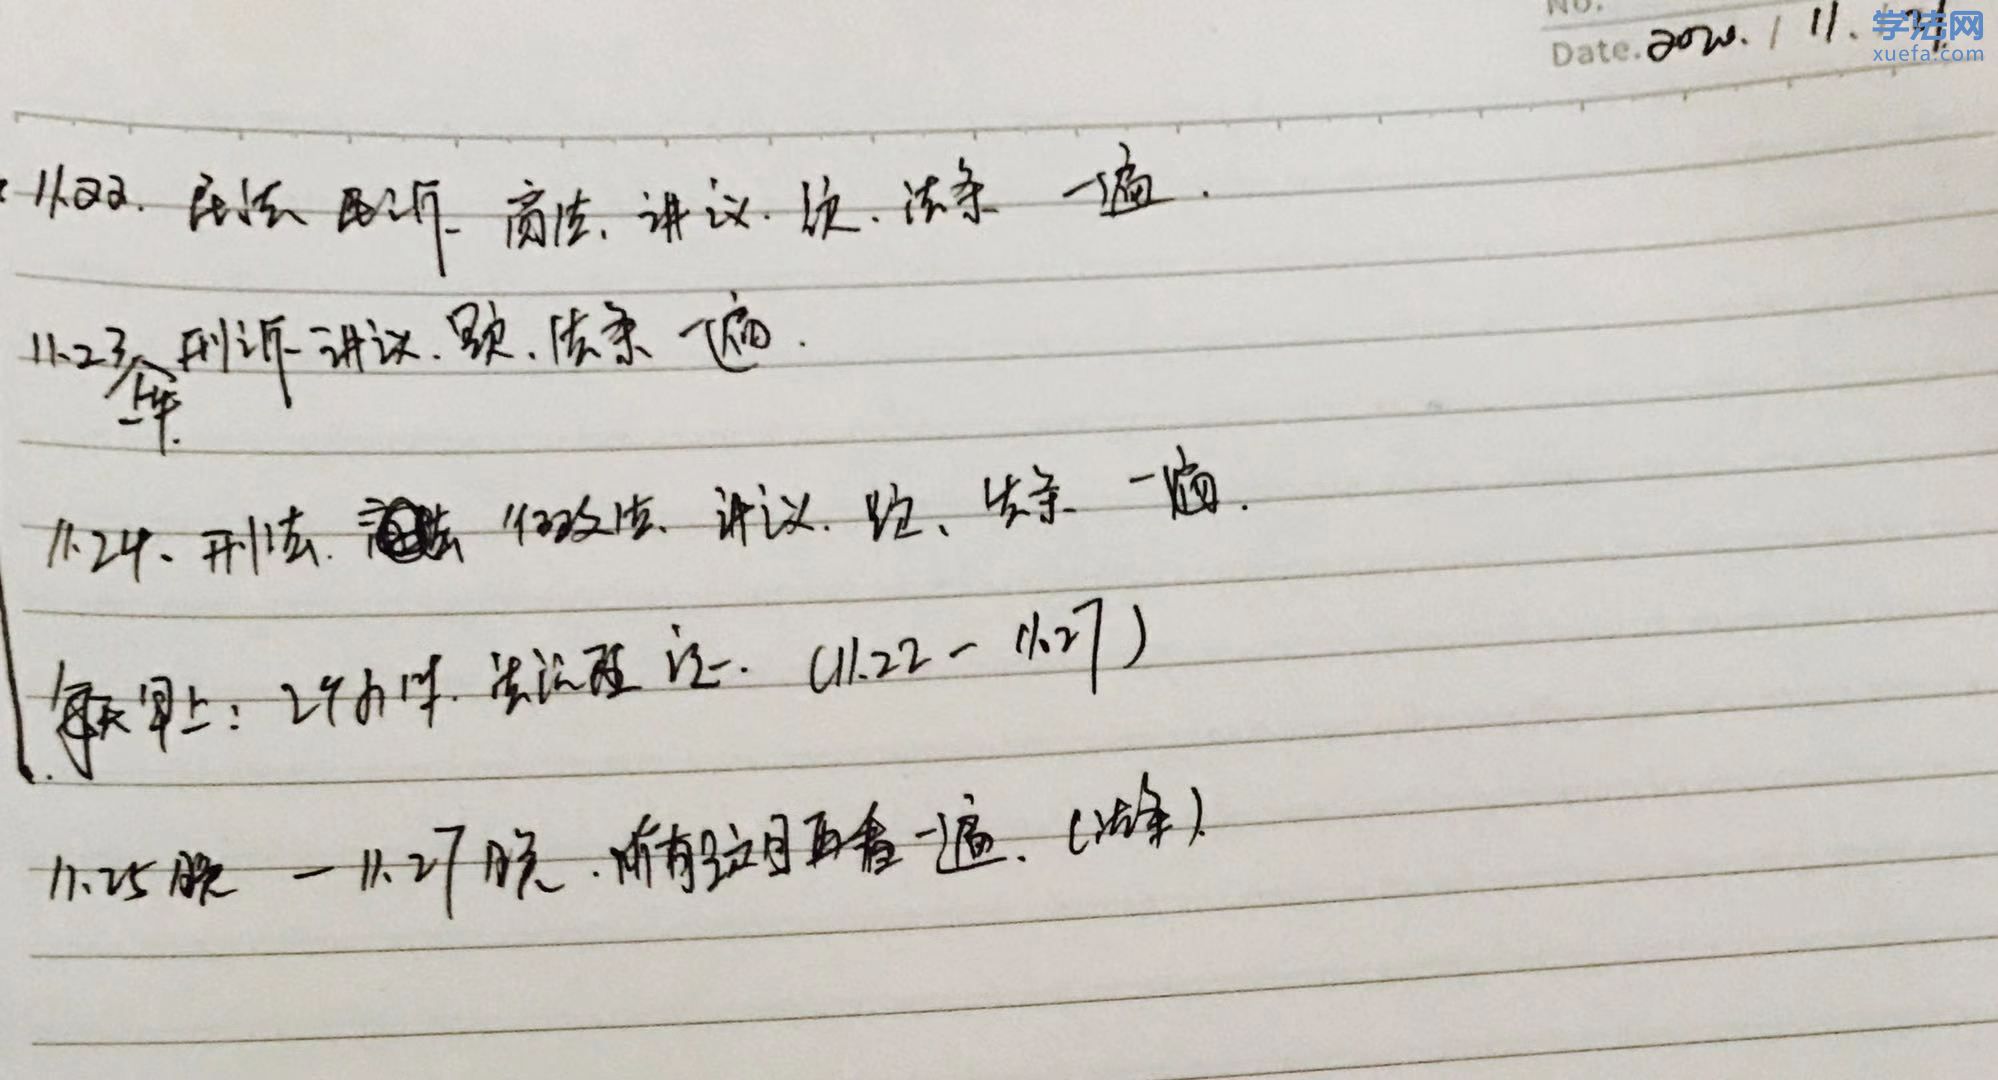 No.
学法网
xuefa.com
Date. 2020. / 11. / 21.
11.22. 民法 民诉 商法. 讲议. 题. 法条 一遍.
11.23 刑诉 讲议. 题. 法条 一遍.
上午.
11.24. 刑法. 行政法. 讲议. 题. 法条 一遍.
每天早上: 2个小时. 法 (11.22 - 11.27)
11.25晚 — 11.27晚. 所有题目再看一遍. (法条).